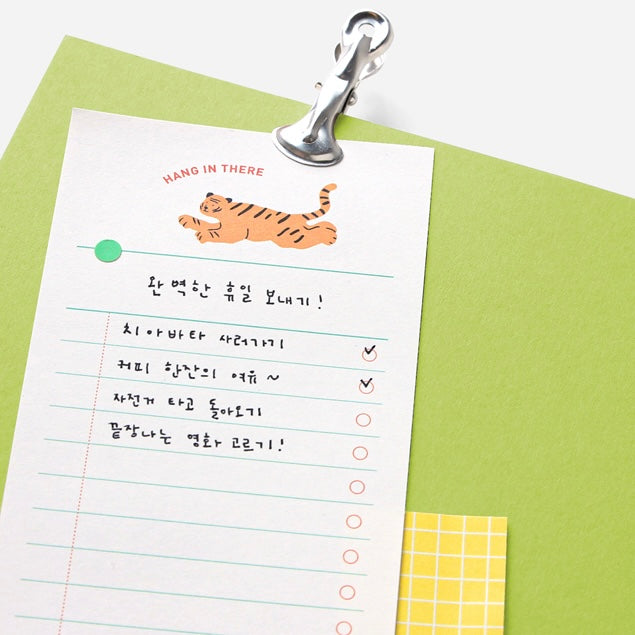 HANG IN THERE
완벽한 휴일 보내기!
치아바타 사러가기
커피 한잔의 여유~
자전거 타고 돌아오기
끝장나는 영화 고르기!